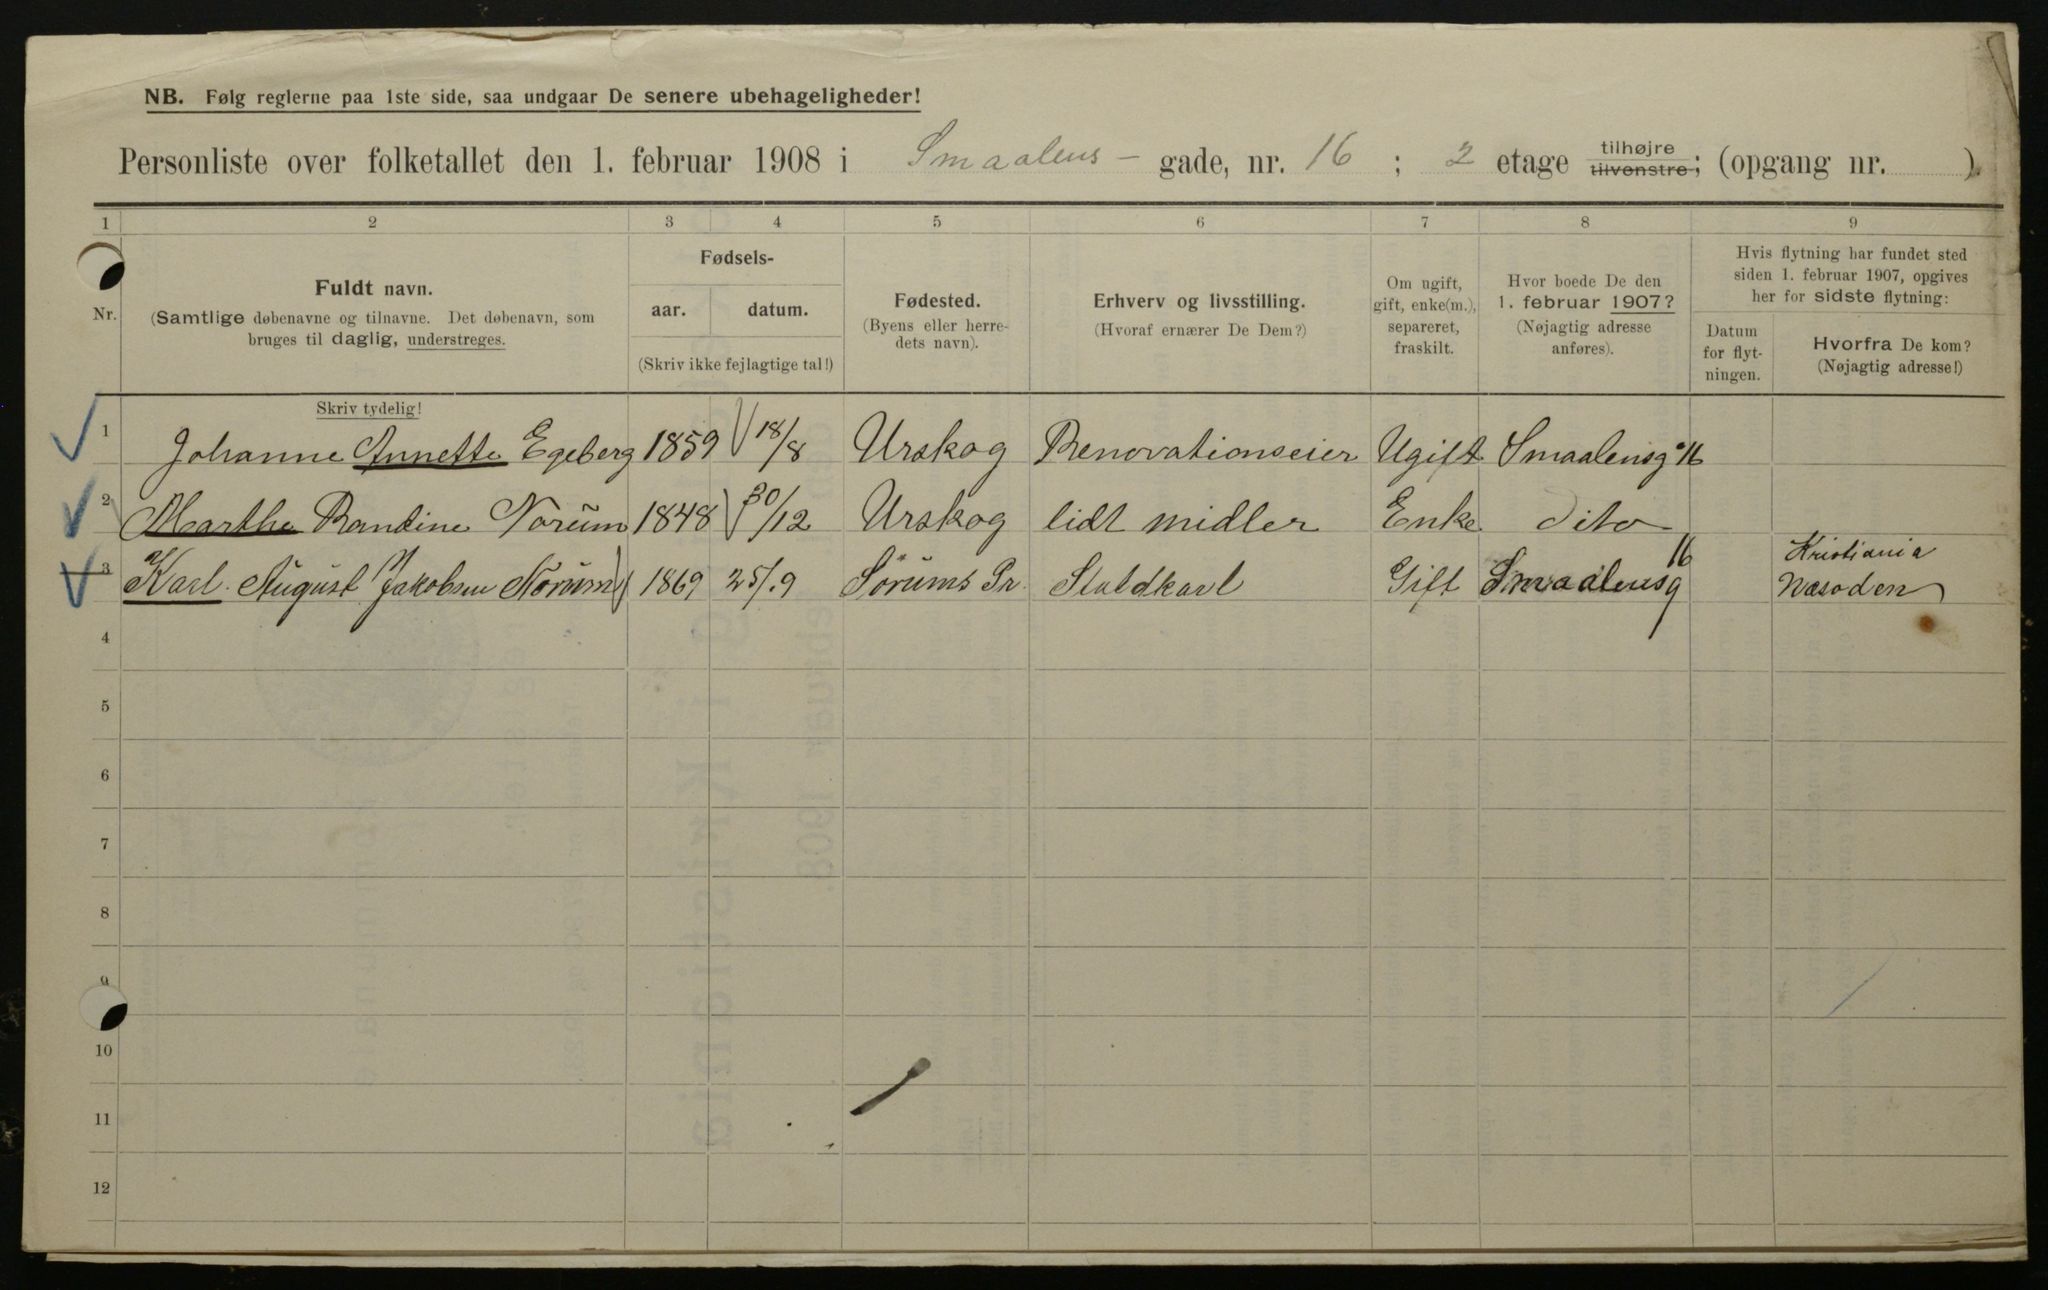 NB. Følg reglerne paa 1ste side, saa undgaar De senere ubehageligheder!
Personliste over folketallet den 1. februar 1908 i Smaalens- gade, nr. 16 ; 2 etage tilhøjre tilvenstre; (opgang nr. ).
1 2 3 4 5 6 7 8 9
Nr.
Fuldt navn.
(Samtlige døbenavne og tilnavne. Det døbenavn, som
bruges til daglig, understreges.
Skriv tydelig!
Fødsels-
aar. datum.
(Skriv ikke fejlagtige tal!)
Fødested.
(Byens eller herre-
dets navn).
Erhverv og livsstilling.
(Hvoraf ernærer De Dem?)
Om ugift,
gift, enke(m.),
separeret,
fraskilt.
Hvor boede De den
1. februar 1907?
(Nøjagtig adresse
anføres).
Hvis flytning har fundet sted
siden 1. februar 1907, opgives
her for sidste flytning:
Datum
for flyt-
ningen.
Hvorfra De kom?
(Nøjagtig adresse!)
1 Johanne Annette Egeberg 1859 18/8 Urskog Renovationseier Ugift Smaalensg 16
2 Marthe Randine Norum 1848 30/12 Urskog lidt midler Enke Dito
3 Karl August Jakobsen Norum 1869 25/9 Sørums Pr. Staldkarl Gift Smaalensg 16 Kristiania Næsoden
4
5
6
7
8
9
10
11
12